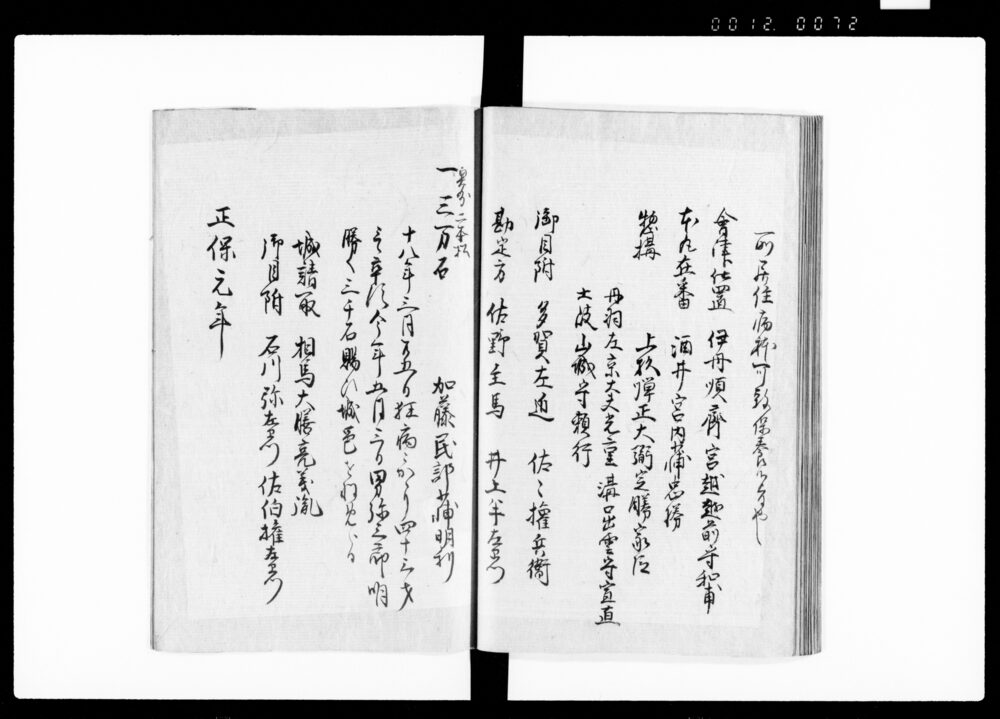 0012. 0072
所居住病躰可致保養
會津仕置 伊丹順齊 宮越越前守
本丸在番 酒井宮内少輔忠勝
惣搆 上杉弾正大弼定勝家臣
丹羽左京大夫光重 溝口出雲守宣直
土岐山城守頼行
御目附 多賀左近 佐々權兵衛
勘定方 佐野主馬 井上半左衛門
奥州二本松
一三万石 加藤民部少輔明利
十八年三月廿五日狂病にかゝり四十三才
にて卒す今年五月三日男弥三郎明
勝へ三千石賜ひ城邑を
城請取 相馬大膳亮義胤
御目附 石川弥左衛門 佐伯權左衛門
正保元年